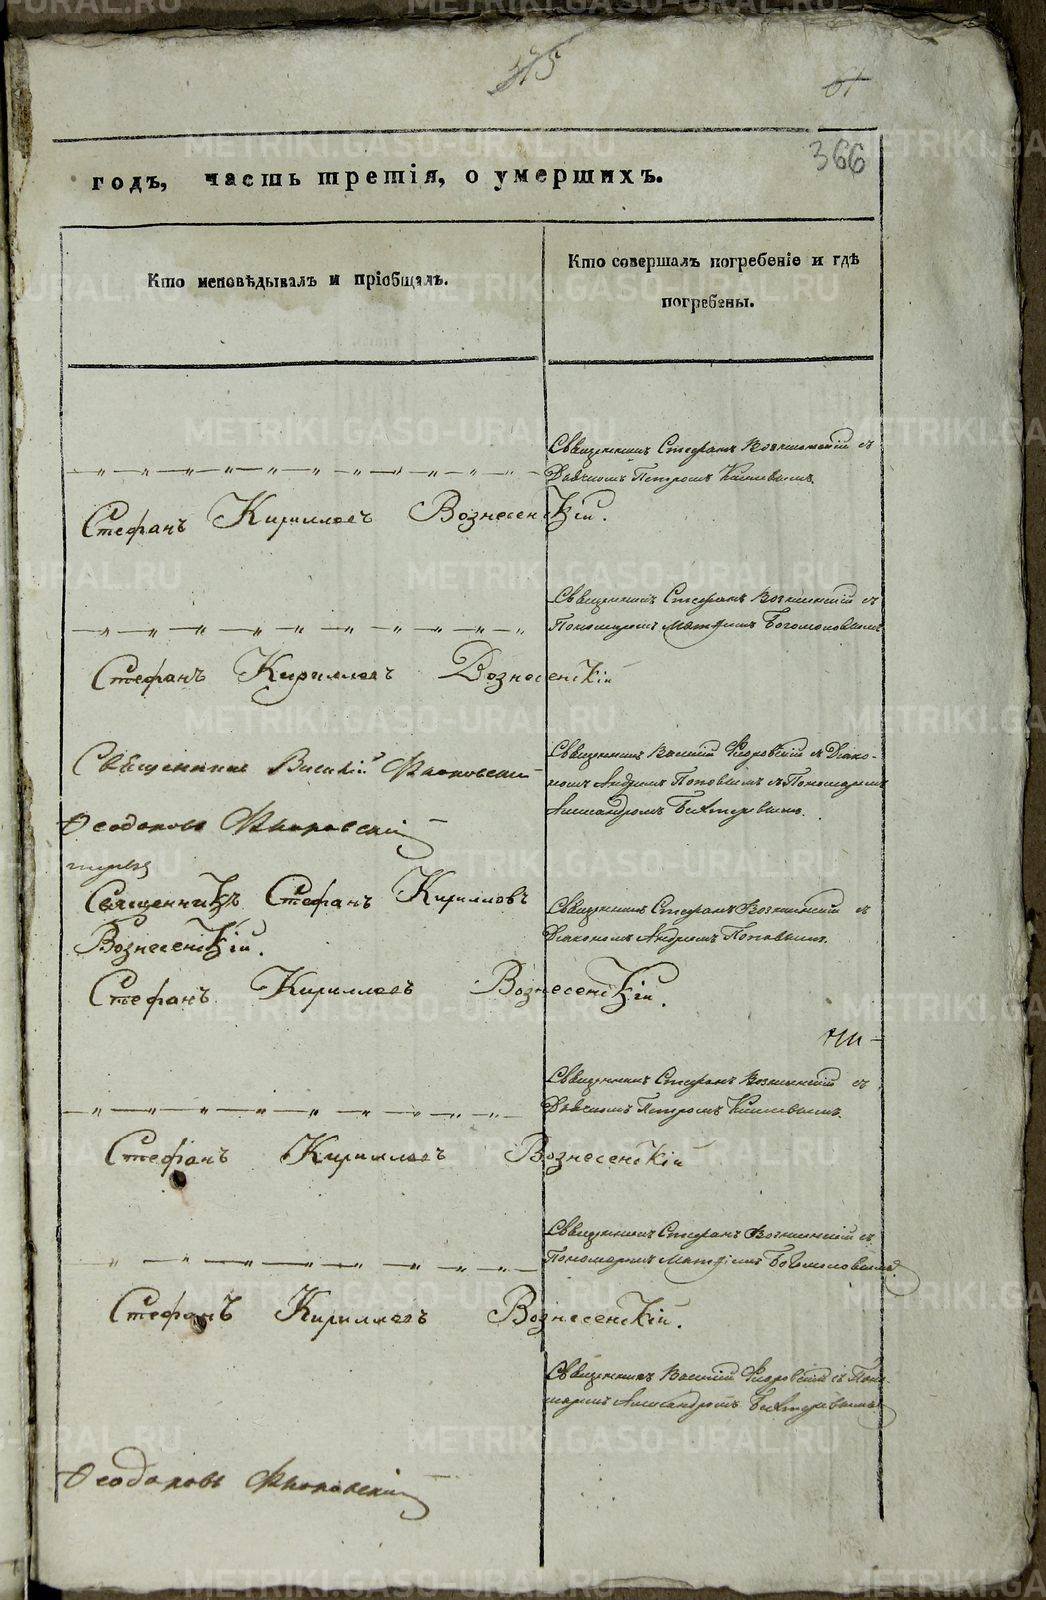 375
61
366
годъ, часть третія, о умершихъ.
Кто исповѣдывалъ и пріобщалъ.
Кто совершалъ погребеніе и гдѣ
погребены.
Священникъ Стефанъ Вознесенскій съ
Дьячкомъ Петромъ
Стефанъ Кирилловъ Вознесенскій.
Священникъ Стефанъ Вознесенскій съ
Пономаремъ Матѳіемъ Богомоловымъ
Стефанъ Кирилловъ Вознесенскій
Священникъ Василій Флоровскій
Священникъ Василій Флоровскій съ Діако-
номъ Андреемъ Поповымъ и Пономаремъ
Александромъ Бехтеревымъ.
Ѳеодоровъ Флоровскій
Священникъ Стефанъ Кириловъ
Вознесенскій.
Священникъ Стефанъ Вознесенскій съ
Діакономъ Андреемъ Поповымъ.
Стефанъ Кирилловъ Вознесенскій.
Священникъ Стефанъ Вознесенскій съ
Дьячкомъ Петромъ
Стефанъ Кирилловъ Вознесенскій
Священникъ Стефанъ Вознесенскій съ
Пономаремъ Матѳіемъ Богомоловымъ
Стефанъ Кирилловъ Вознесенскій.
Священникъ Василій Флоровскій съ Поно-
маремъ Александромъ Бехтеревымъ
Ѳеодоровъ Флоровскій
METRIKI.GASO-URAL.RU